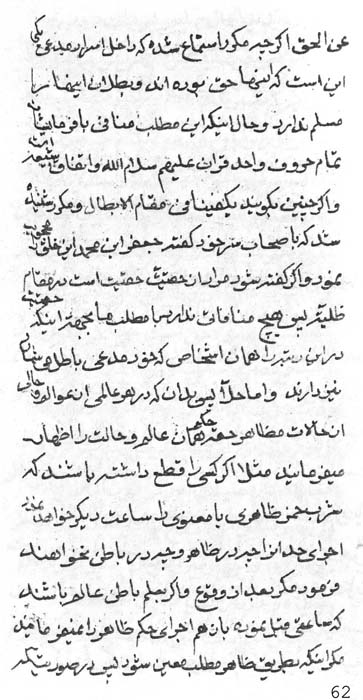 عن الحق اگر چه مکرر استماع شده که داخل اسرار مدعی یکی
این است که اینها حق بوده اند و بطلان اینها را
مسلم ندارد و حال اینکه این مطلب منافی با فرمایشات
تمام حروف واحد قرآن علیهم سلام الله و اتفاق
و اگر چنین بگویند یکفینا فی مقام الابطال و مکرر شنیده
شد که با صحاب سر خود گفته جعفر ابن محمد ابن
نمود و اگر گفته شود مراد از حقیت حقیت است در مقام
ظلیة پس هیچ منافاتی ندارد با مطلب ما بجهة اینکه
همان اشخاص که خود مدعی باطل می
نیز دارند و اما حل آ پس بدان که در هر عالمی از عوالم و
از حالات مظاهر حقه حکم همان عالم و حالت را اظهار
میفرمایند مثلا اگر کسی را قطع داشته باشند که
شرب خمر ظاهری یا معنوی را ساعت دیگر خواهد نمود
اجرای حد را چه در ظاهر و چه در باطن نخواهند
فرمود مگر بعد از وقوع و اگر بعلم باطن عالم باشند
که ساعتی قبل نموده باز هم اجرای حکم ظاهر را نمیفرمایند
مگر اینکه بطریق ظاهر مطلب معین شود پس در صورتیکه
62